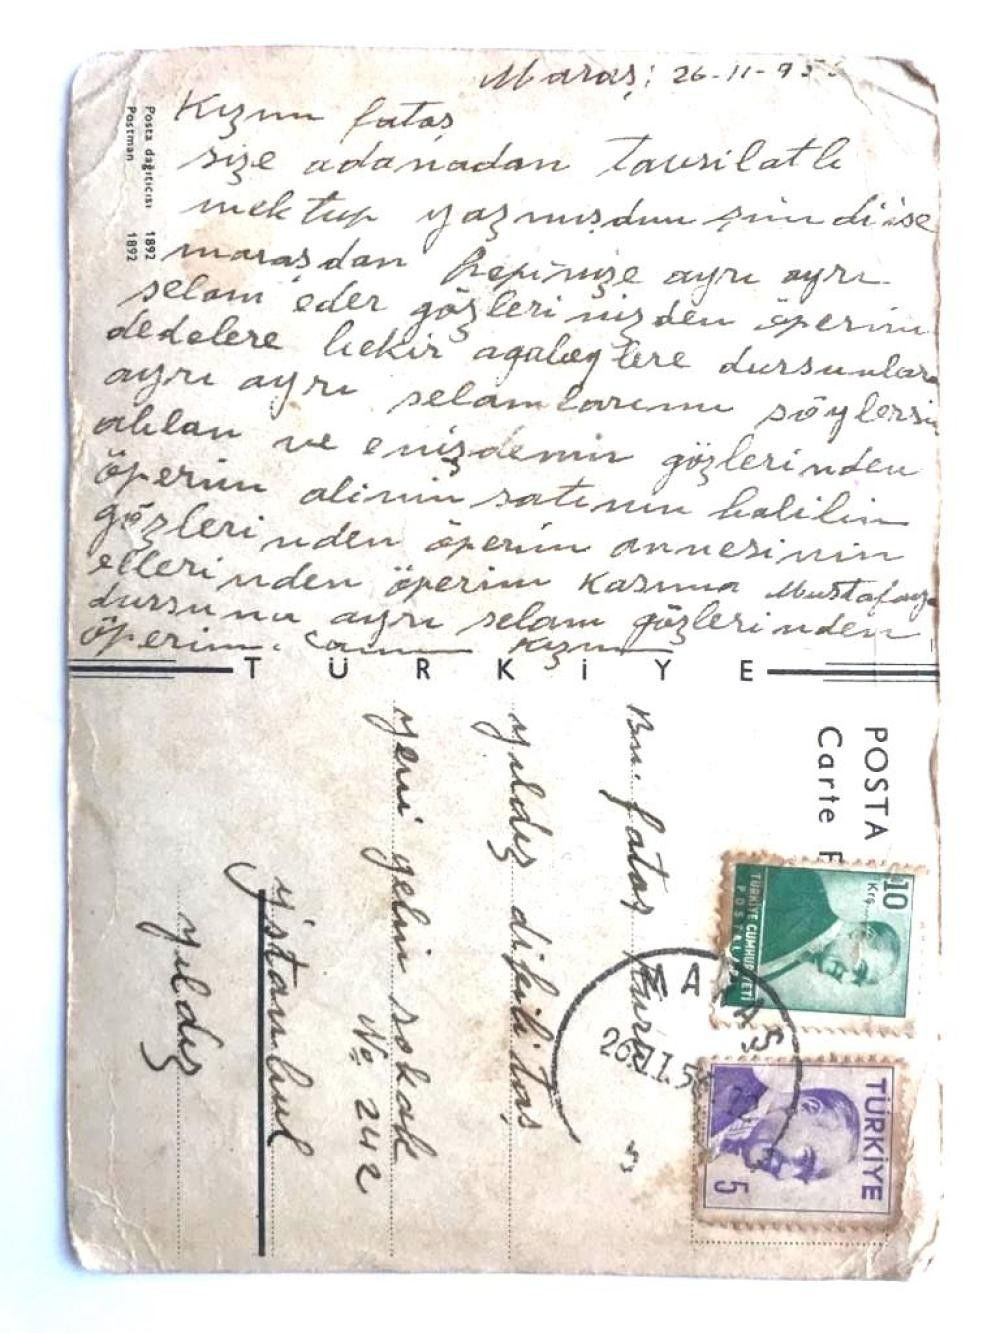 Maraş: 26-11-95
Kızım fatoş
size adanadan tavsilatlı
mektup yazmışdım şimdi ise
maraşdan hepinize ayrı ayrı
selam eder gözlerinizden öperim
dedelere bekir agabeylere dursunlara
ayrı ayrı selamlarımı söylersin
ablan ve enişdemin gözlerinden
öperim alinin satının halilin
gözlerinden öperim annesinin
ellerinden öperim Kasıma Mustafaya
dursuna ayrı selam gözlerinden
öperim. Canım Kızım
Posta dağıtıcısı 1892
Postman 1892
TÜRKİYE
POSTA
Carte P
Bn. fatoş
yıldız dikilitaş
yeni gelin sokak
No 242
istanbul
yıldız
10
Krş.
TÜRKİYE CUMHURİYETİ
POSTALARI
MARAŞ
26.11.5
TÜRKİYE
5